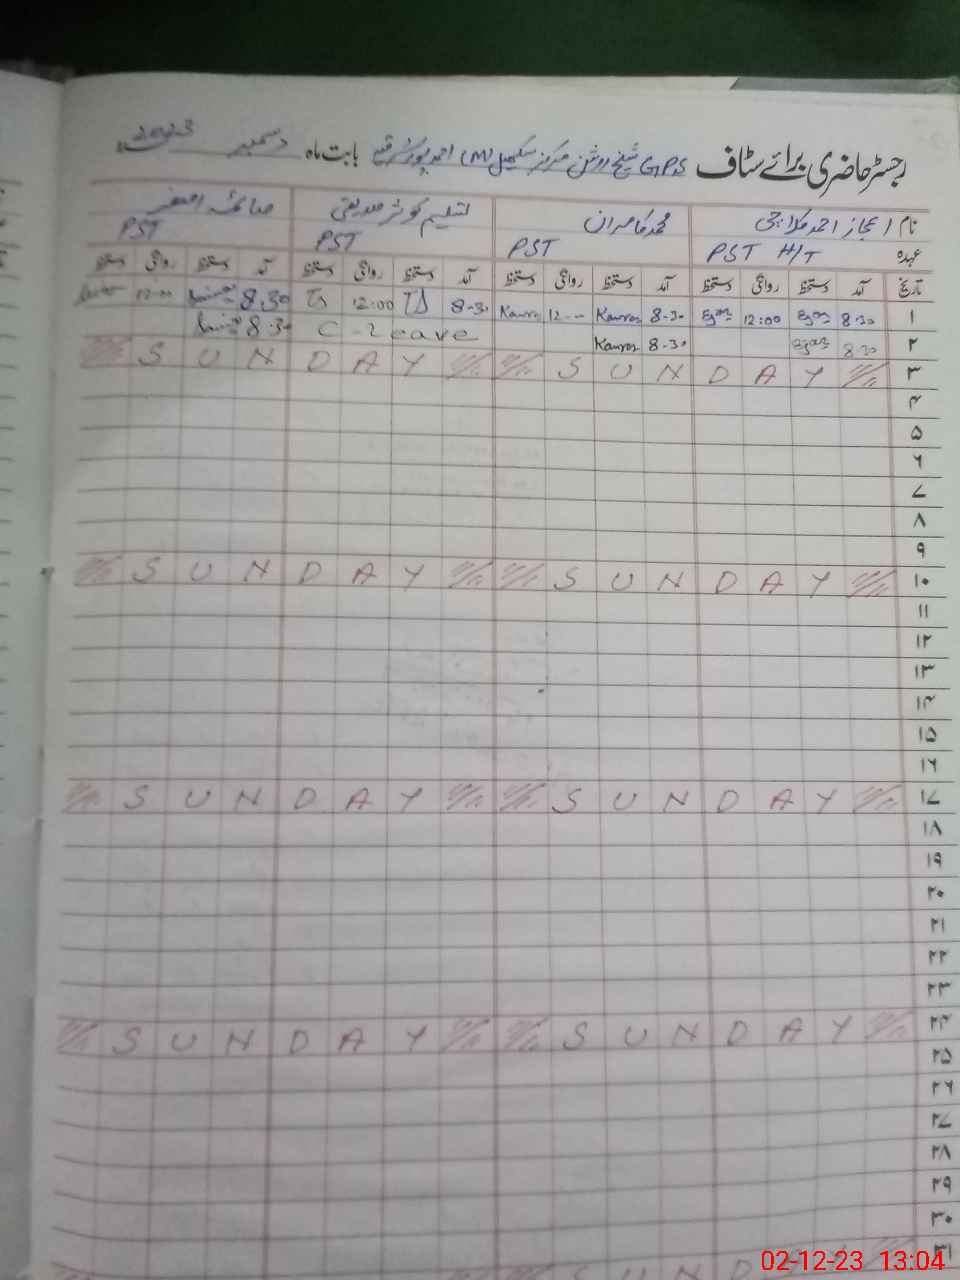 2023
رجسٹر حاضری برائے سٹاف GPS شیخ روشن مرکز (M) احمد پور بابت ماہ دسمبر
نام اعجاز احمد محمد کامران تسلیم کوثر صدیقی صائمہ اصغر
عہدہ PST H/T PST PST PST
تاریخ آمد دستخط روانگی دستخط آمد دستخط روانگی دستخط آمد دستخط روانگی دستخط آمد دستخط روانگی دستخط
۱ 8-30 Ejaz 12:00 Ejaz 8-30 Kamran 12-00 Kamran 8-30 TS 12:00 TS 8.30 12-00
۲ 8-30 Ejaz 8-30 Kamran C-Leave 8-30
۳ SUNDAY SUNDAY
۴
۵
۶
۷
۸
۹
۱۰ SUNDAY SUNDAY
۱۱
۱۲
۱۳
۱۴
۱۵
۱۶
۱۷ SUNDAY SUNDAY
۱۸
۱۹
۲۰
۲۱
۲۲
۲۳
۲۴ SUNDAY SUNDAY
۲۵
۲۶
۲۷
۲۸
۲۹
۳۰
۳۱ SUNDAY SUNDAY
02-12-23 13:04